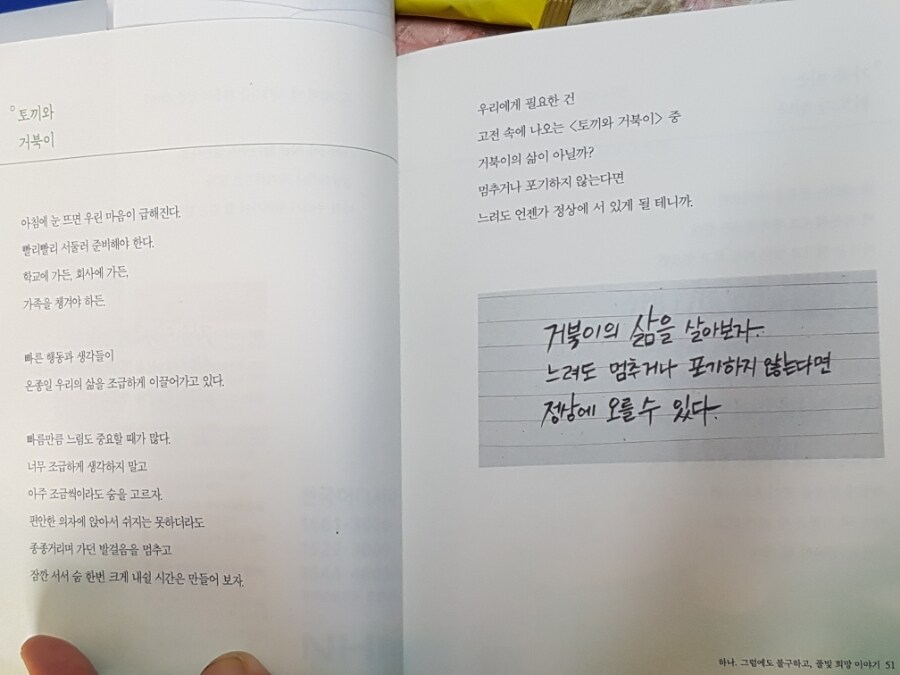 토끼와
거북이
아침에 눈 뜨면 우린 마음이 급해진다.
빨리빨리 서둘러 준비해야 한다.
학교에 가든, 회사에 가든,
가족을 챙겨야 하든.
빠른 행동과 생각들이
온종일 우리의 삶을 조급하게 이끌어가고 있다.
빠름만큼 느림도 중요할 때가 많다.
너무 조급하게 생각하지 말고
아주 조금씩이라도 숨을 고르자.
편안한 의자에 앉아서 쉬지는 못하더라도
종종거리며 가던 발걸음을 멈추고
잠깐 서서 숨 한번 크게 내쉴 시간은 만들어 보자.
우리에게 필요한 건
고전 속에 나오는 <토끼와 거북이> 중
거북이의 삶이 아닐까?
멈추거나 포기하지 않는다면
느려도 언젠가 정상에 서 있게 될 테니까.
거북이의 삶을 살아보자.
느려도 멈추거나 포기하지 않는다면
정상에 오를 수 있다.
하나. 그럼에도 불구하고, 풀빛 희망 이야기 51